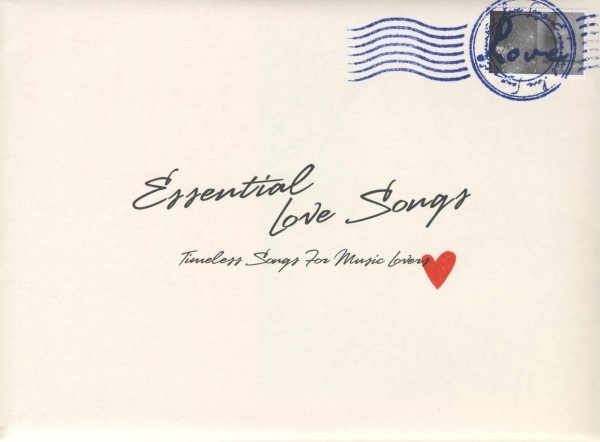 Love
Essential
Love Songs
Timeless Songs For Music Lovers